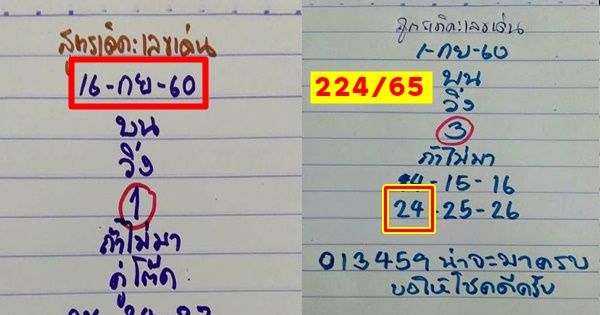 สูตรเด็ดเลขเด่น
16-กย-60
บน
วิ่ง
1
ถ้าไม่มา
คู่โต๊ด
สูตรเด็ดเลขเด่น
1-กย-60
224/65
บน
วิ่ง
3
ถ้าไม่มา
14-15-16
24-25-26
013459 น่าจะมาครบ
ขอให้โชคดีครับ